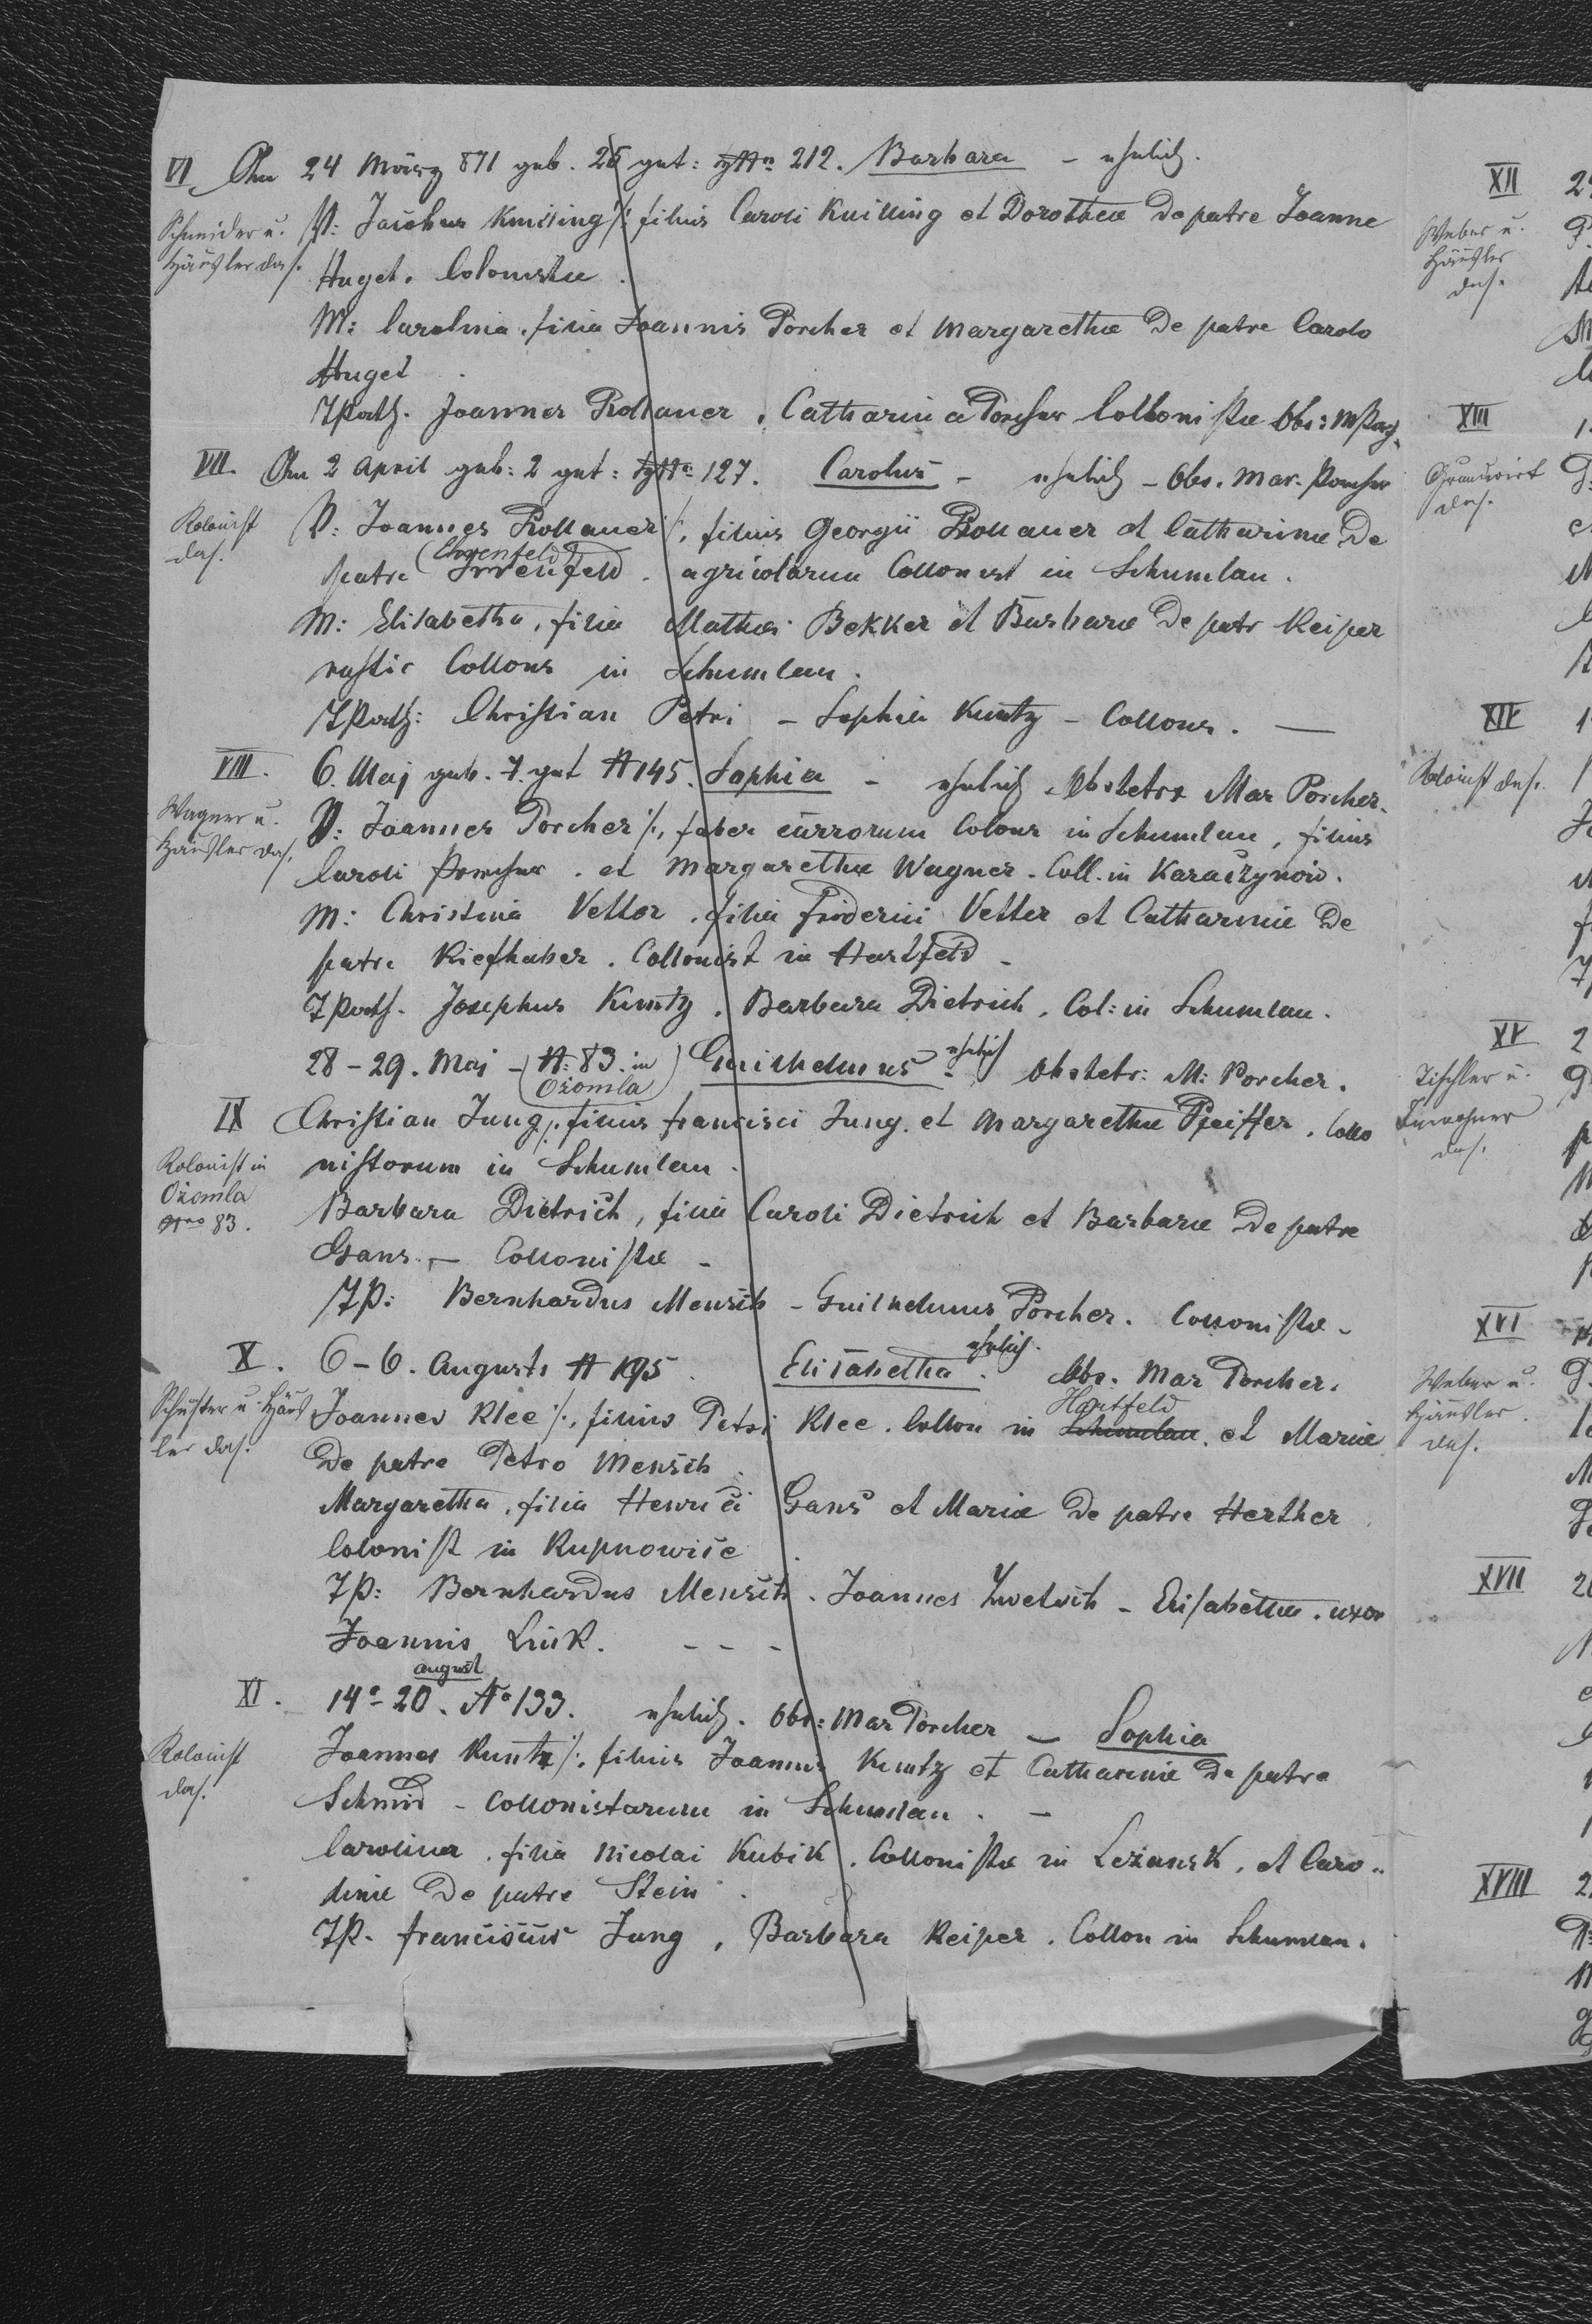 VI. Am 24 März 871 geb. 25 get: HNo 212. Barbara - ehelich.
Schneider u. Häusler das.
V: Jacobus Knilling /: filius Caroli Knilling et Dorotheæ de patre Joanne
Huget. Colonistæ.
M: Carolina, filia Joannis Porcher et Margarethæ de patre Carolo
Huget.
TPath. Joannes Rollauer, Catharina Porcher Collonistæ Obs: M
VII. Am 2 April geb: 2 get: HNo 127. Carolus - ehelich - Obs. Mar. Porcher
Kolonist das.
V: Joannes Rollauer /:, filius Georgii Rollauer et Catharinæ de
(Ehrenfeld)
patre . agricolarum Collonist in Schumlau.
M: Elisabetha, filia Mathei Bekker et Barbaræ de patr Keiper
rustic Collons in Schumlau.
TPath: Christian Petri - Sophia Kuntz - Collons. —
VIII. 6. Maj geb. 7. get N 145. Sophia - ehelich. Obstetrx Mar Porcher.
Wagner u. Häusler das.
V: Joannes Porcher /:, faber currorum Colons in Schumlau, filius
Caroli Porcher. et Margarethæ Wagner. Coll. in Karaczynów.
M: Christina Vetter, filia Friderici Vetter et Catharinæ de
patre Kiefhaber. Collonist in Hartfeld -
TPath. Josephus Kuntz, Barbara Dietrich, Col: in Schumlau.
28 - 29. Maj - (N: 83. in Ożomla) Guilhelmus - ehelich Obstetr: M: Porcher.
IX Christian Jung /:, filius Francisci Jung. et Margarethæ Pfeiffer, Collo
Kolonist in Ożomla Nro 83.
nistorum in Schumlau.
Barbara Dietrich, filia Caroli Dietrich et Barbaræ de patre
Gans. - Collonistæ -
TP: Bernhardus Mensch - Guilhelmus Porcher. Collonistæ -
X. 6 - 6. Augusti N 195. Elisabetha. ehelich. Obs. Mar Porcher.
Schuster u. Häusler das.
Hartfeld
Joannes Klee /:, filius Petri Klee. Collon in Schumlau. et Mariæ
de patre Petro Mensch.
Margaretha, filia Henrici Gans et Mariæ de patre Herther
Colonist in Rupnowice.
TP: Bernhardus Mensch. Joannes Zwetsch - Elisabetha. uxor
Joannis Lük. - - -
august
XI. 14 - 20. No 133. ehelich. Obs: Mar Porcher - Sophia
Kolonist das.
Joannes Kuntz /:, filius Joannis Kuntz et Catharinæ de patre
Schmid - Collonistarum in Schumlau. -
Carolina, filia Nicolai Kubik. Collonistæ in Leżansk. et Caro-
linæ de patre Stein.
TP. Franciscus Jung, Barbara Keiper. Collon in Schumlau.
XII
Weber u. Häusler das.
XIII
Grundwirt das.
XIV
Kolonist das.
XV
Tischler u. Inwohner das.
XVI
Weber u. Häusler das.
XVII
XVIII